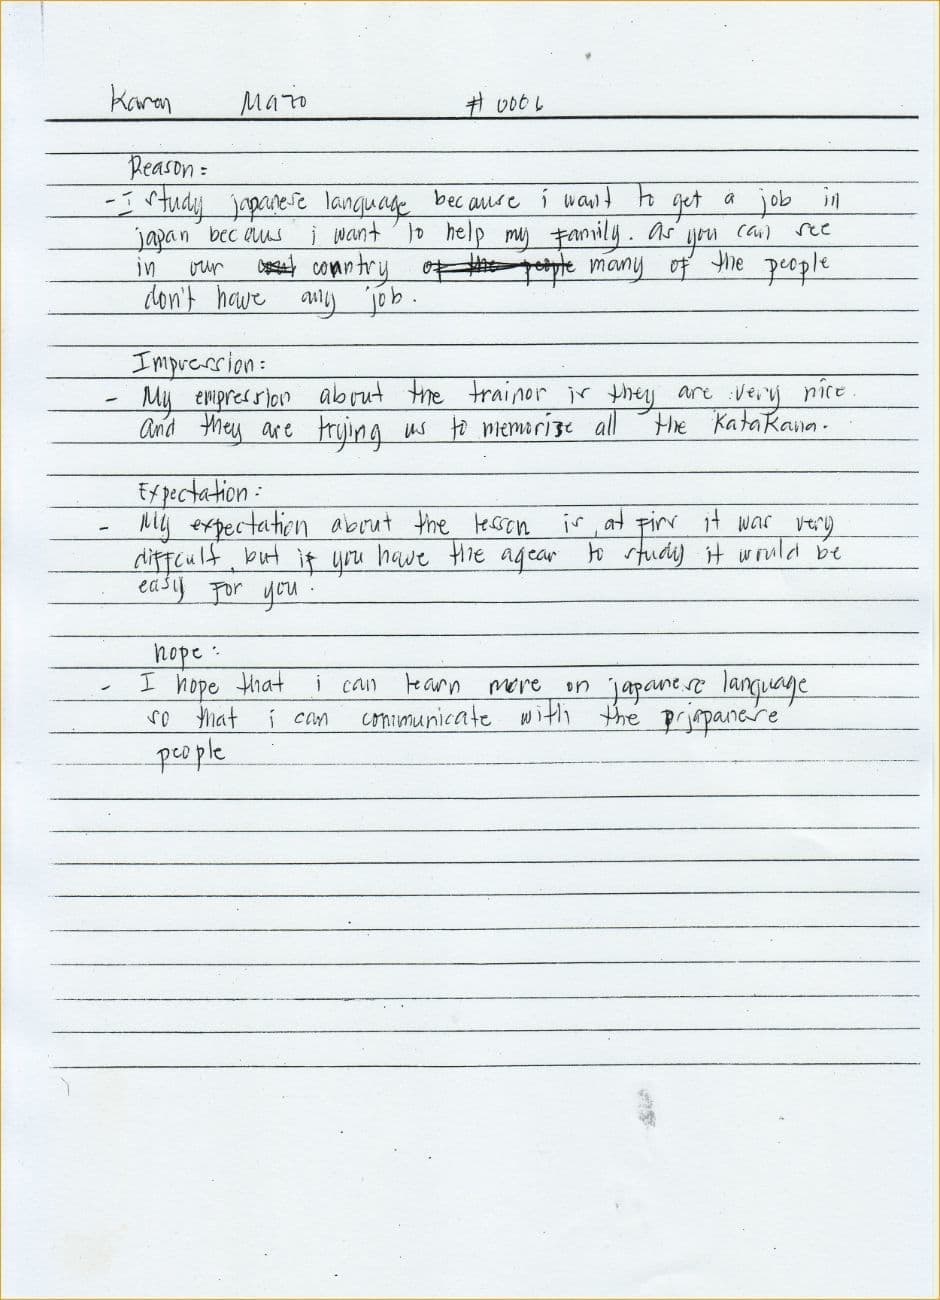 Karen Mazo #0006
Reason:
- I study japanese language because i want to get a job in
japan becaus i want to help my family. as you can see
in our country many of the people
don't have any job.
Impression:
- My empression about the trainor is they are very nice.
and they are trying us to memorize all the Katakana.
Expectation:
- My expectation about the lesson is, at firs it was very
diffcult, but if you have the agear to study it would be
easy for you.
hope:
- I hope that i can learn more on japanese language
so that i can communicate with the japanese
people